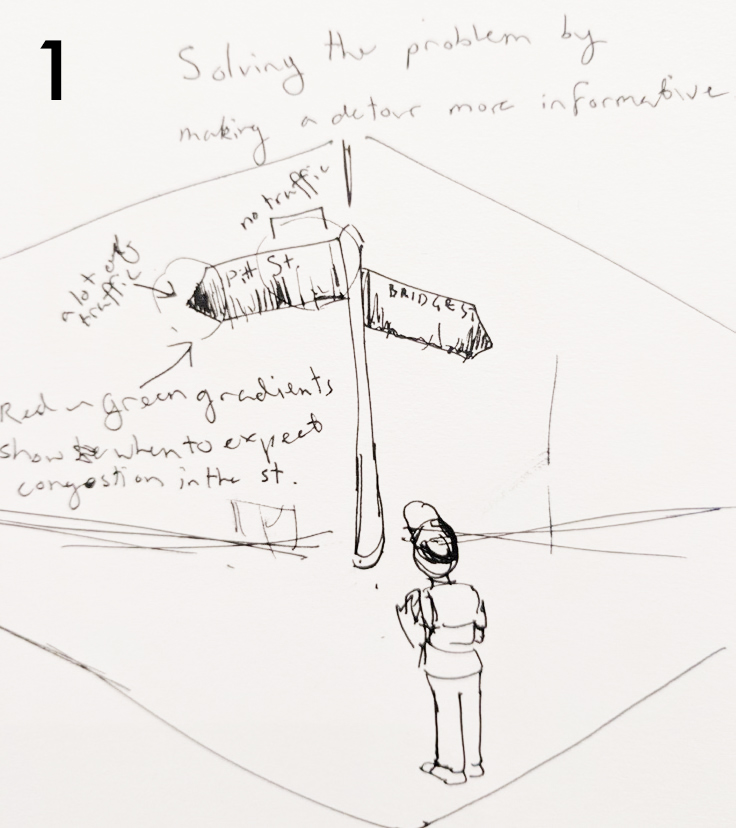 1
Solving the problem by
making a detour more informative
no traffic
a lot of
traffic
Pitt St
BRIDGE St
Red n green gradients
show when to expect
congestion in the st.